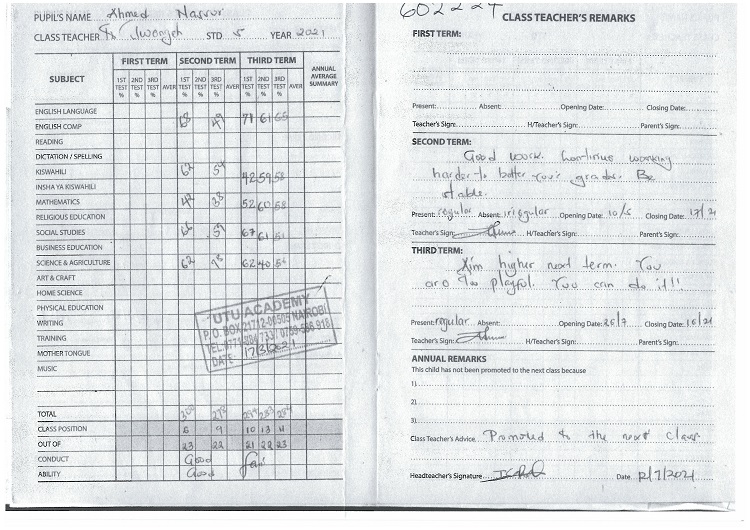 PUPIL'S NAME Ahmed Nasrur
CLASS TEACHER STD 5 YEAR 2021
SUBJECT FIRST TERM SECOND TERM THIRD TERM ANNUAL AVERAGE SUMMARY
1ST TEST % 2ND TEST % 3RD TEST % AVER 1ST TEST % 2ND TEST % 3RD TEST % AVER 1ST TEST % 2ND TEST % 3RD TEST % AVER
ENGLISH LANGUAGE
ENGLISH COMP 49 71 61 65
READING
DICTATION / SPELLING
KISWAHILI 62 59 42 59 58
INSHA YA KISWAHILI
MATHEMATICS 38 52 60 58
RELIGIOUS EDUCATION
SOCIAL STUDIES 66 59 67 61 51
BUSINESS EDUCATION
SCIENCE & AGRICULTURE 62 62 40 56
ART & CRAFT
HOME SCIENCE
PHYSICAL EDUCATION
WRITING
TRAINING
MOTHER TONGUE
MUSIC
UTU ACADEMY
P. O. BOX 21712-00505 NAIROBI
DATE:
TOTAL
CLASS POSITION 9 10 13 11
OUT OF 23 22 21 22 23
CONDUCT Good
ABILITY Good Fair
CLASS TEACHER'S REMARKS
FIRST TERM:
Present: Absent: Opening Date: Closing Date:
Teacher's Sign: H/Teacher's Sign: Parent's Sign:
SECOND TERM:
Good work. Continue working
harder to better your grades. Be
stable.
Present: regular Absent: irregular Opening Date: 10/5 Closing Date:
Teacher's Sign: H/Teacher's Sign: Parent's Sign:
THIRD TERM:
Aim higher next term. You
are too playful. You can do it!!
Present: regular Absent: Opening Date: 26/7 Closing Date:
Teacher's Sign: H/Teacher's Sign: Parent's Sign:
ANNUAL REMARKS
This child has not been promoted to the next class because
1)
2)
3)
Class Teacher's Advice Promoted to the next class
Headteacher's Signature Date 12/7/2021